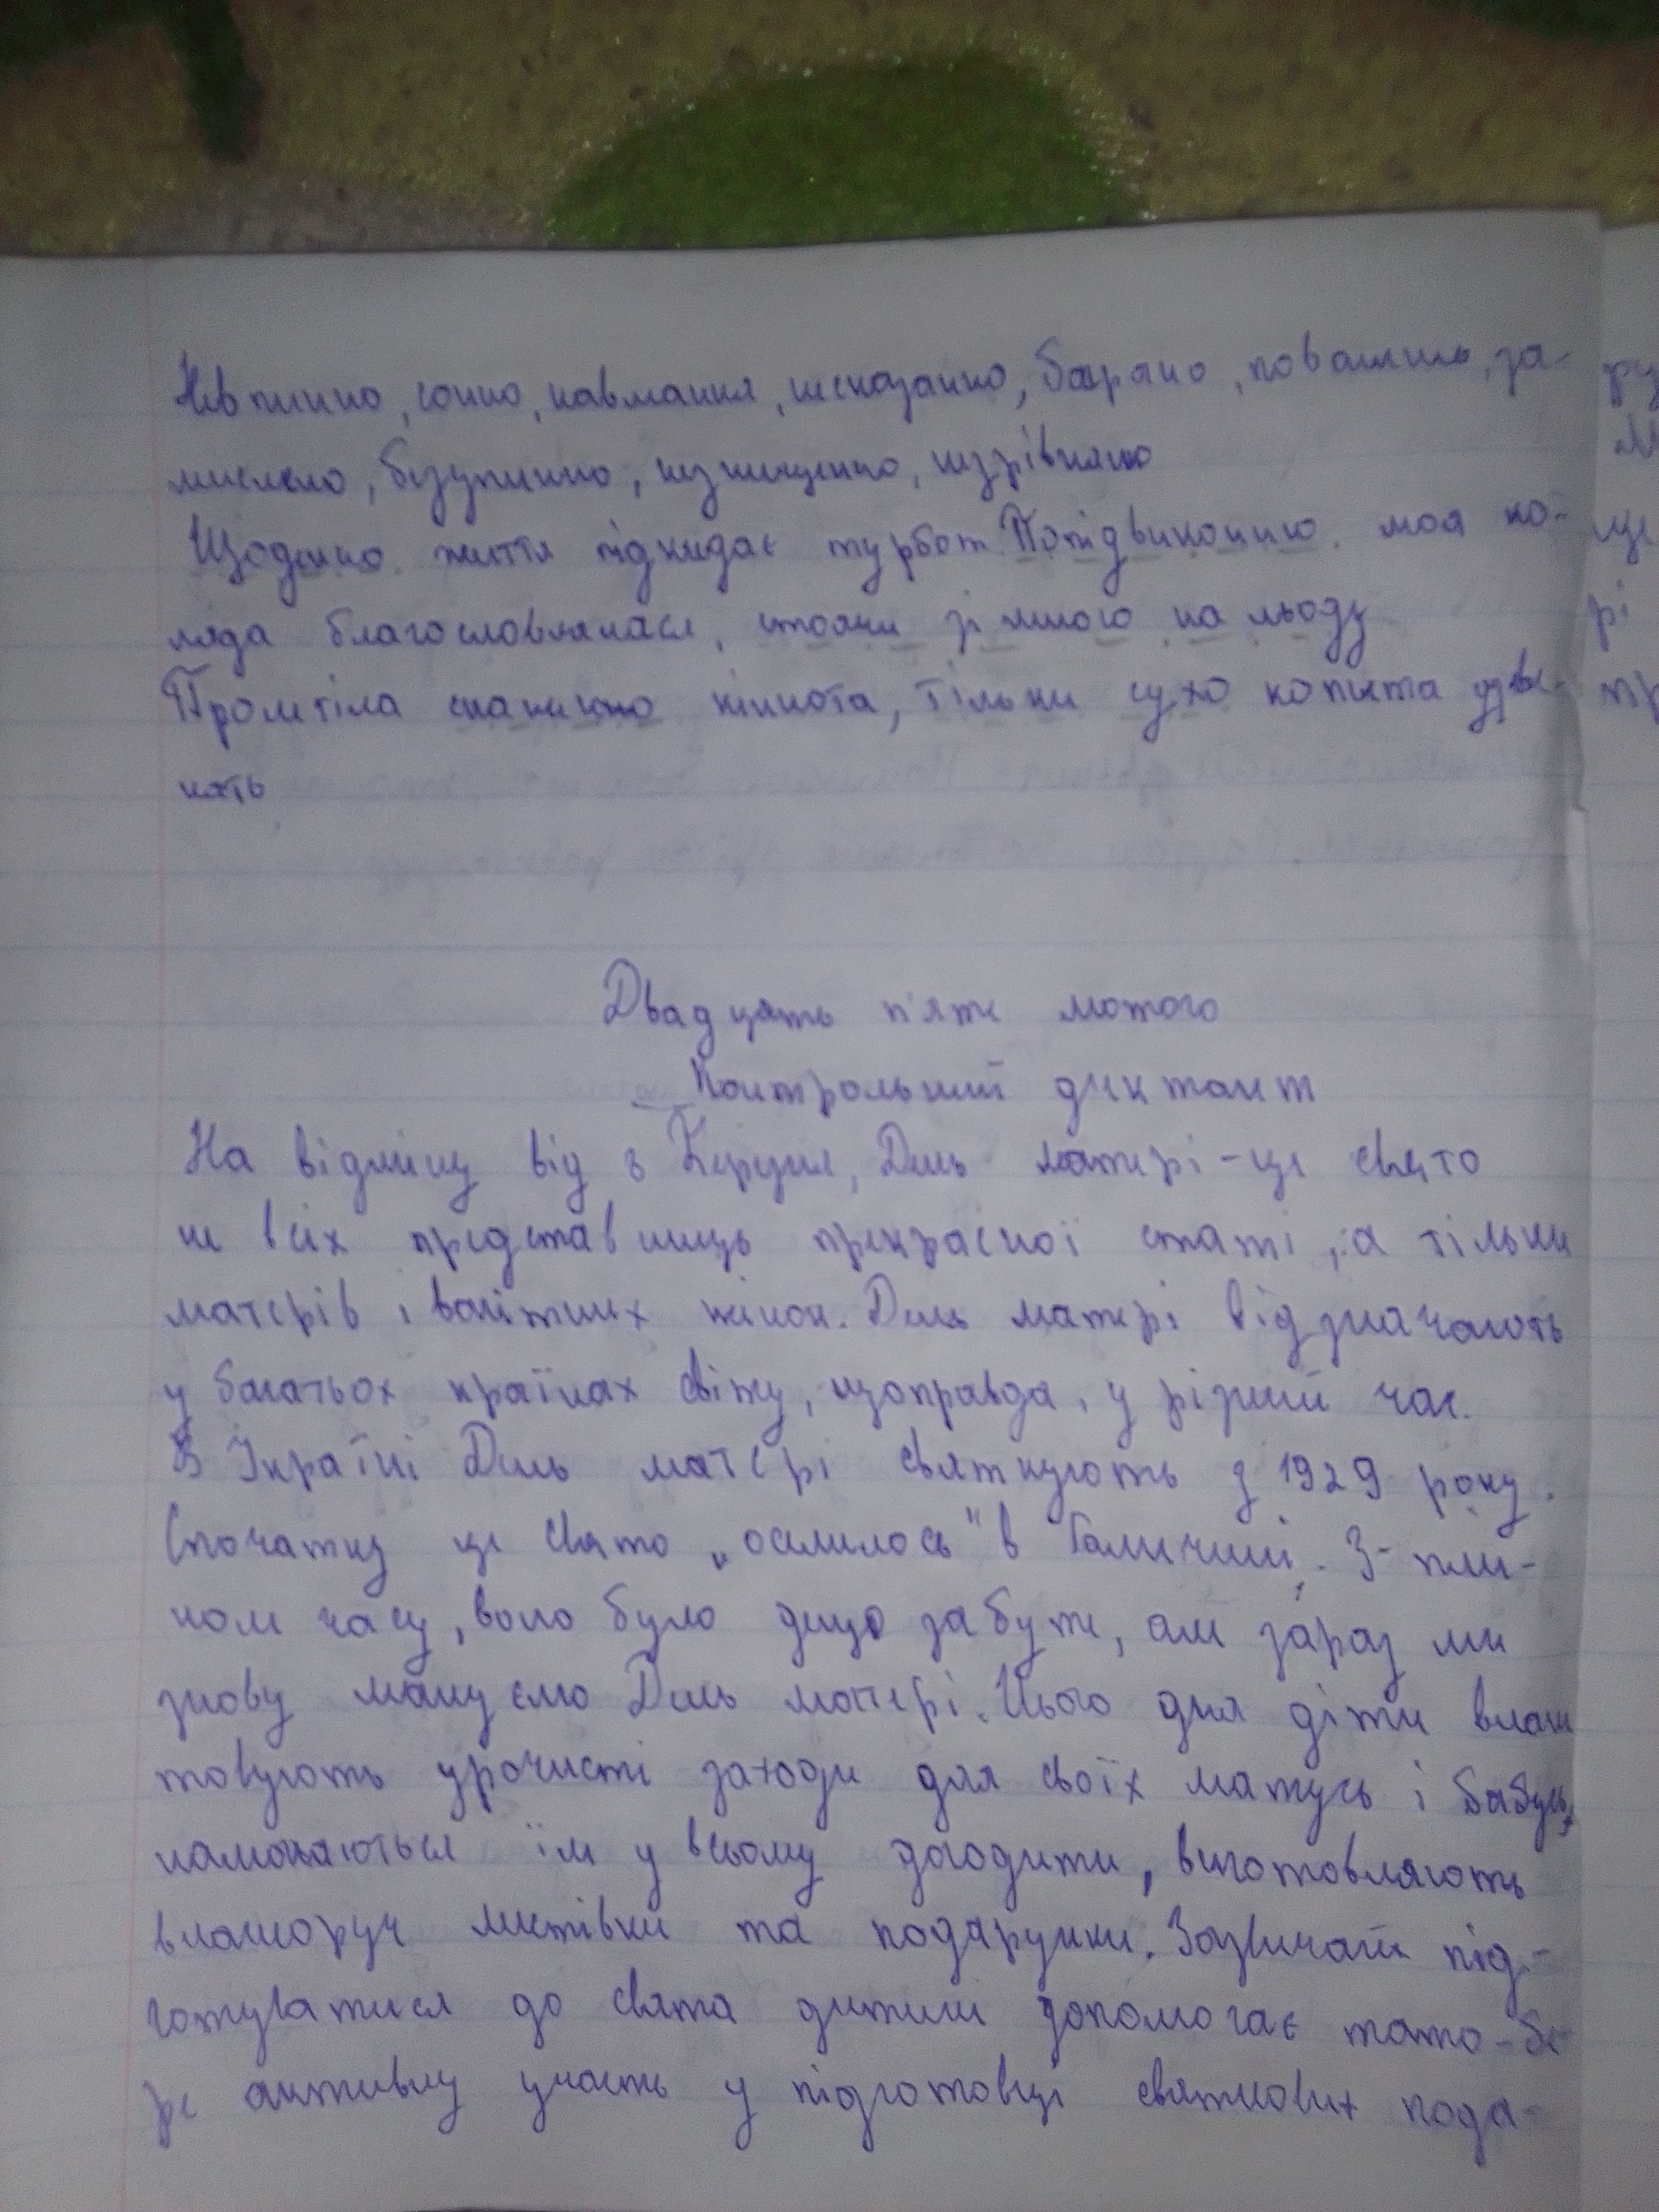 Невпинно, сонно, навмання, несказанно, багряно, повагом, за-
мислено, безупинно, незчищенно, незрівняно
Щоденно життя підкидає турбот. Попідвиконню моя ко-
ляда благословлялася, стоячи зі мною на льоду
Пролетіла скажено кіннота, тільки сухо копита дзве-
нять
Двадцять п'яте лютого
Контрольний диктант
На відміну від 8 Березня, День матері - це свято
не всіх представниць прекрасної статі, а тільки
матерів і вагітних жінок. День матері відзначають
у багатьох країнах світу, щоправда, у різний час.
В Україні День матері святкують з 1929 року.
Спочатку це свято „оселилось" в Галичині. З пли-
ном часу, воно було дещо забуте, але зараз ми
знову шануємо День матері. Цього дня діти влаш
товують урочисті заходи для своїх матусь і бабусь,
намагаються їм у всьому догодити, виготовляють
власноруч листівки та подарунки. Зазвичай під-
готуватися до свята дитині допомагає тато - бе-
ре активну участь у підготовці святкових пода-